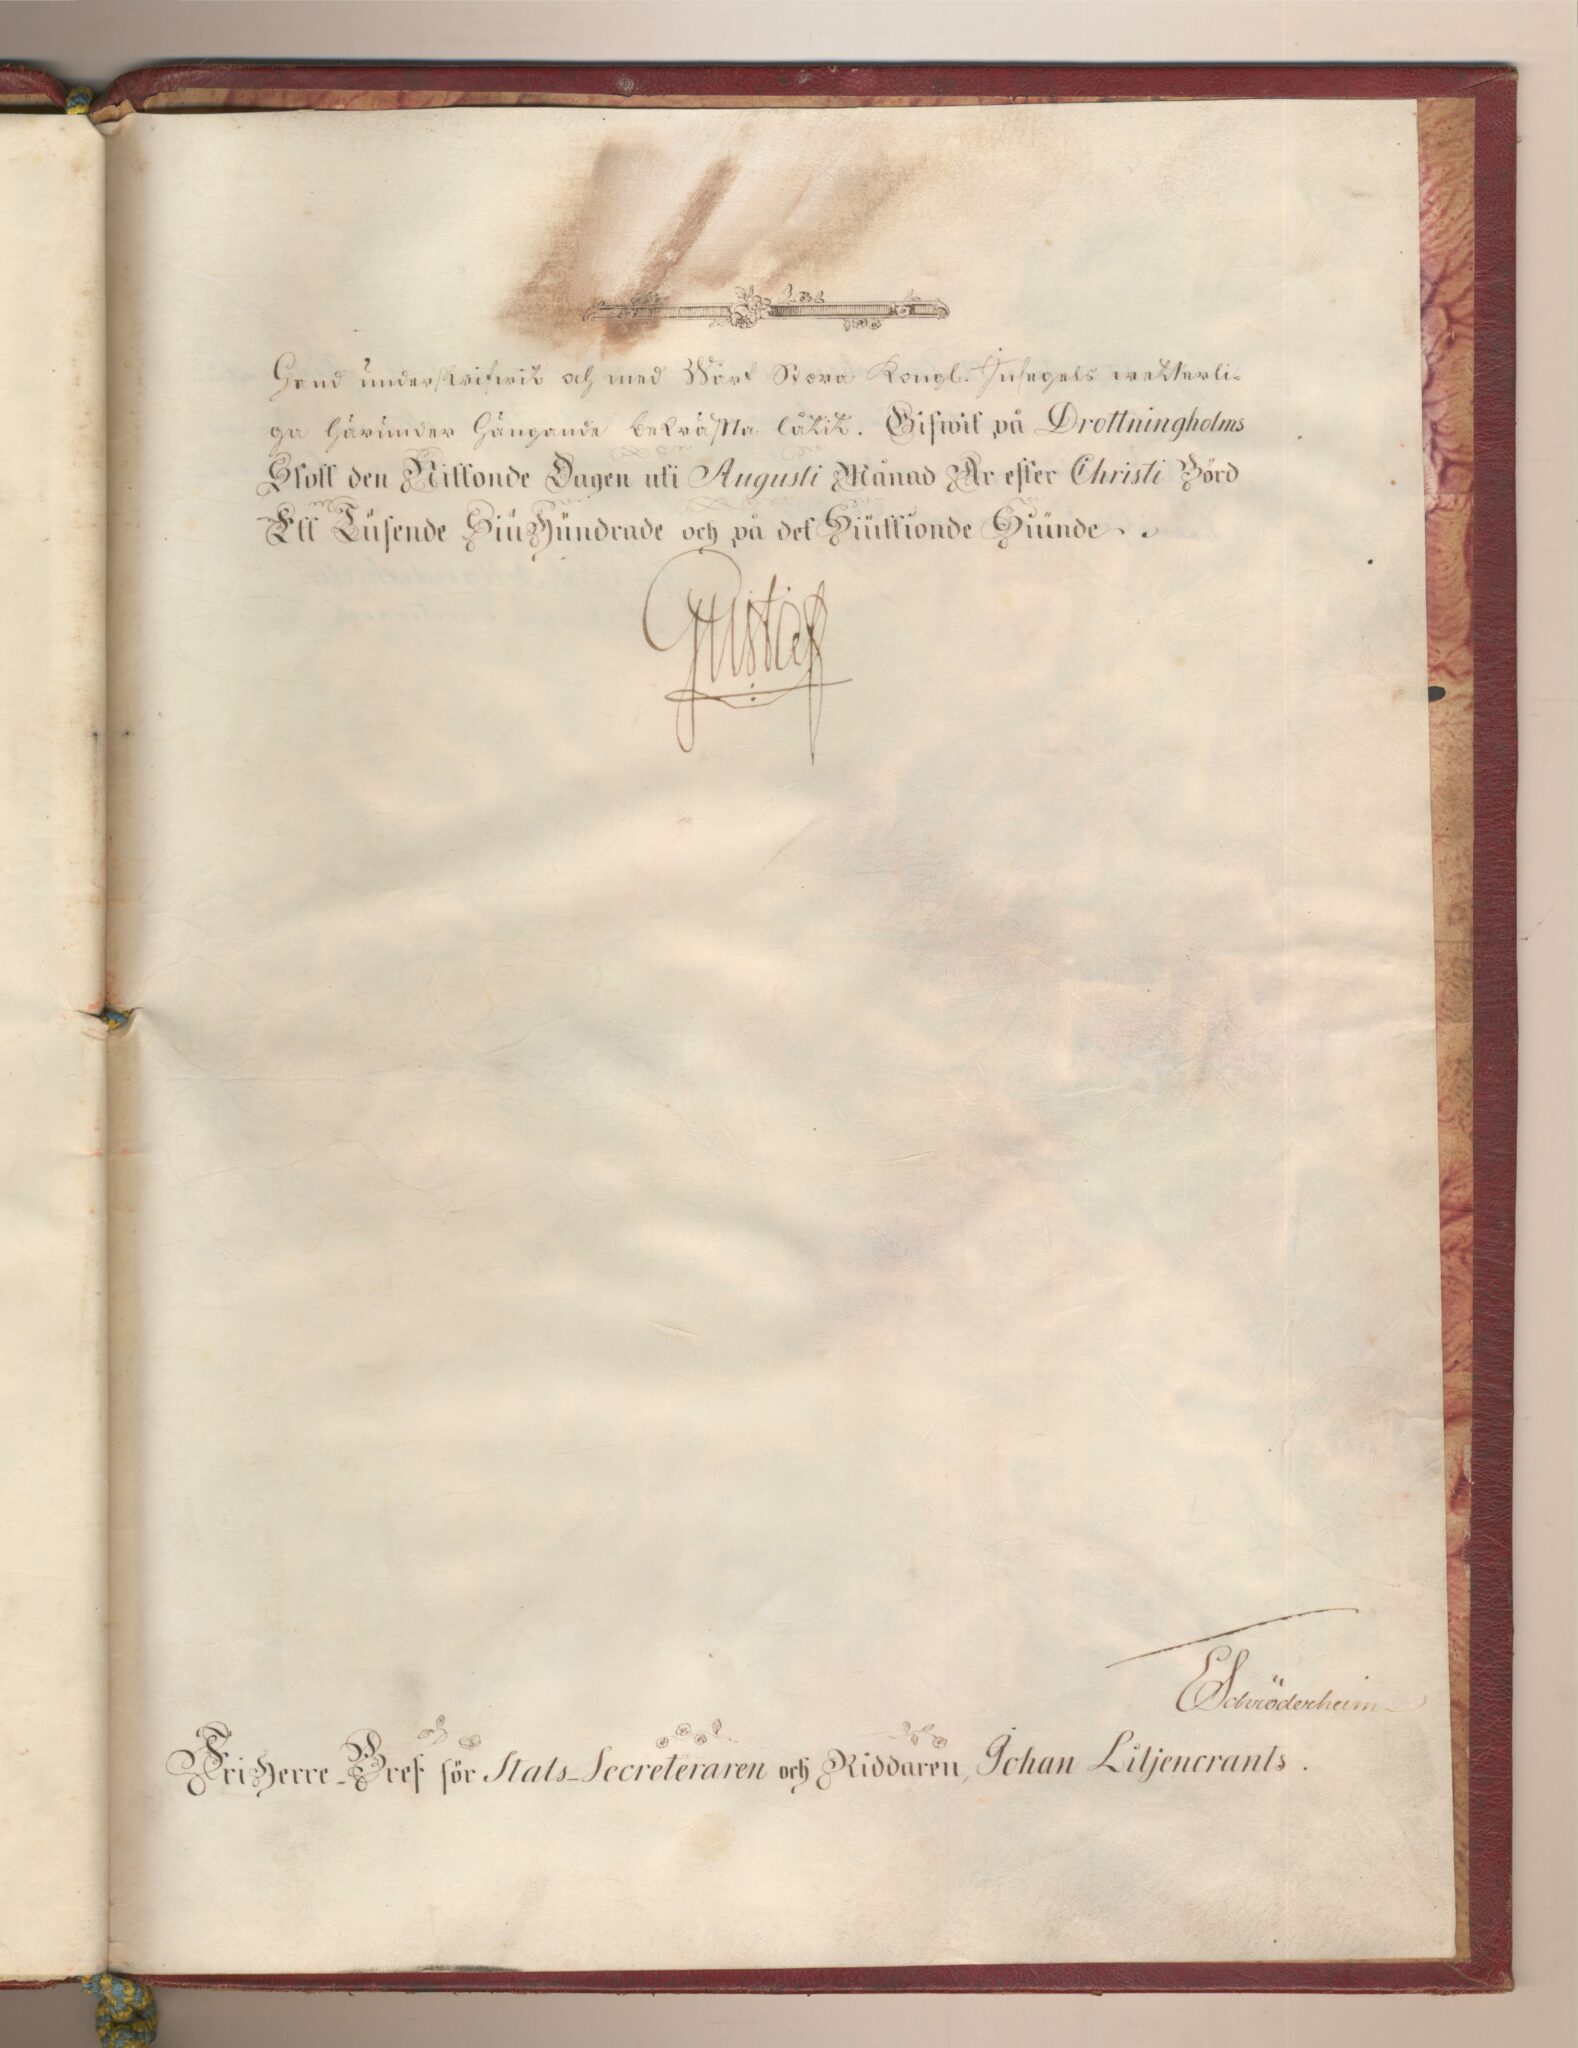 Hand underskrifwit och med Wårt Stora Kongl. Insegels wetterli-
ga härunder Hängande bekräfta låtit. Gifwit på Drottningholms
Slott den Nittonde Dagen uti Augusti Månad År efter Christi Börd
Ett Tusende Siü Hündrade och på det Siüttionde Siünde
Gustaf
ESchröderheim
FriHerre-Bref för Stats-Secreteraren och Riddaren, Johan Liljencrants.